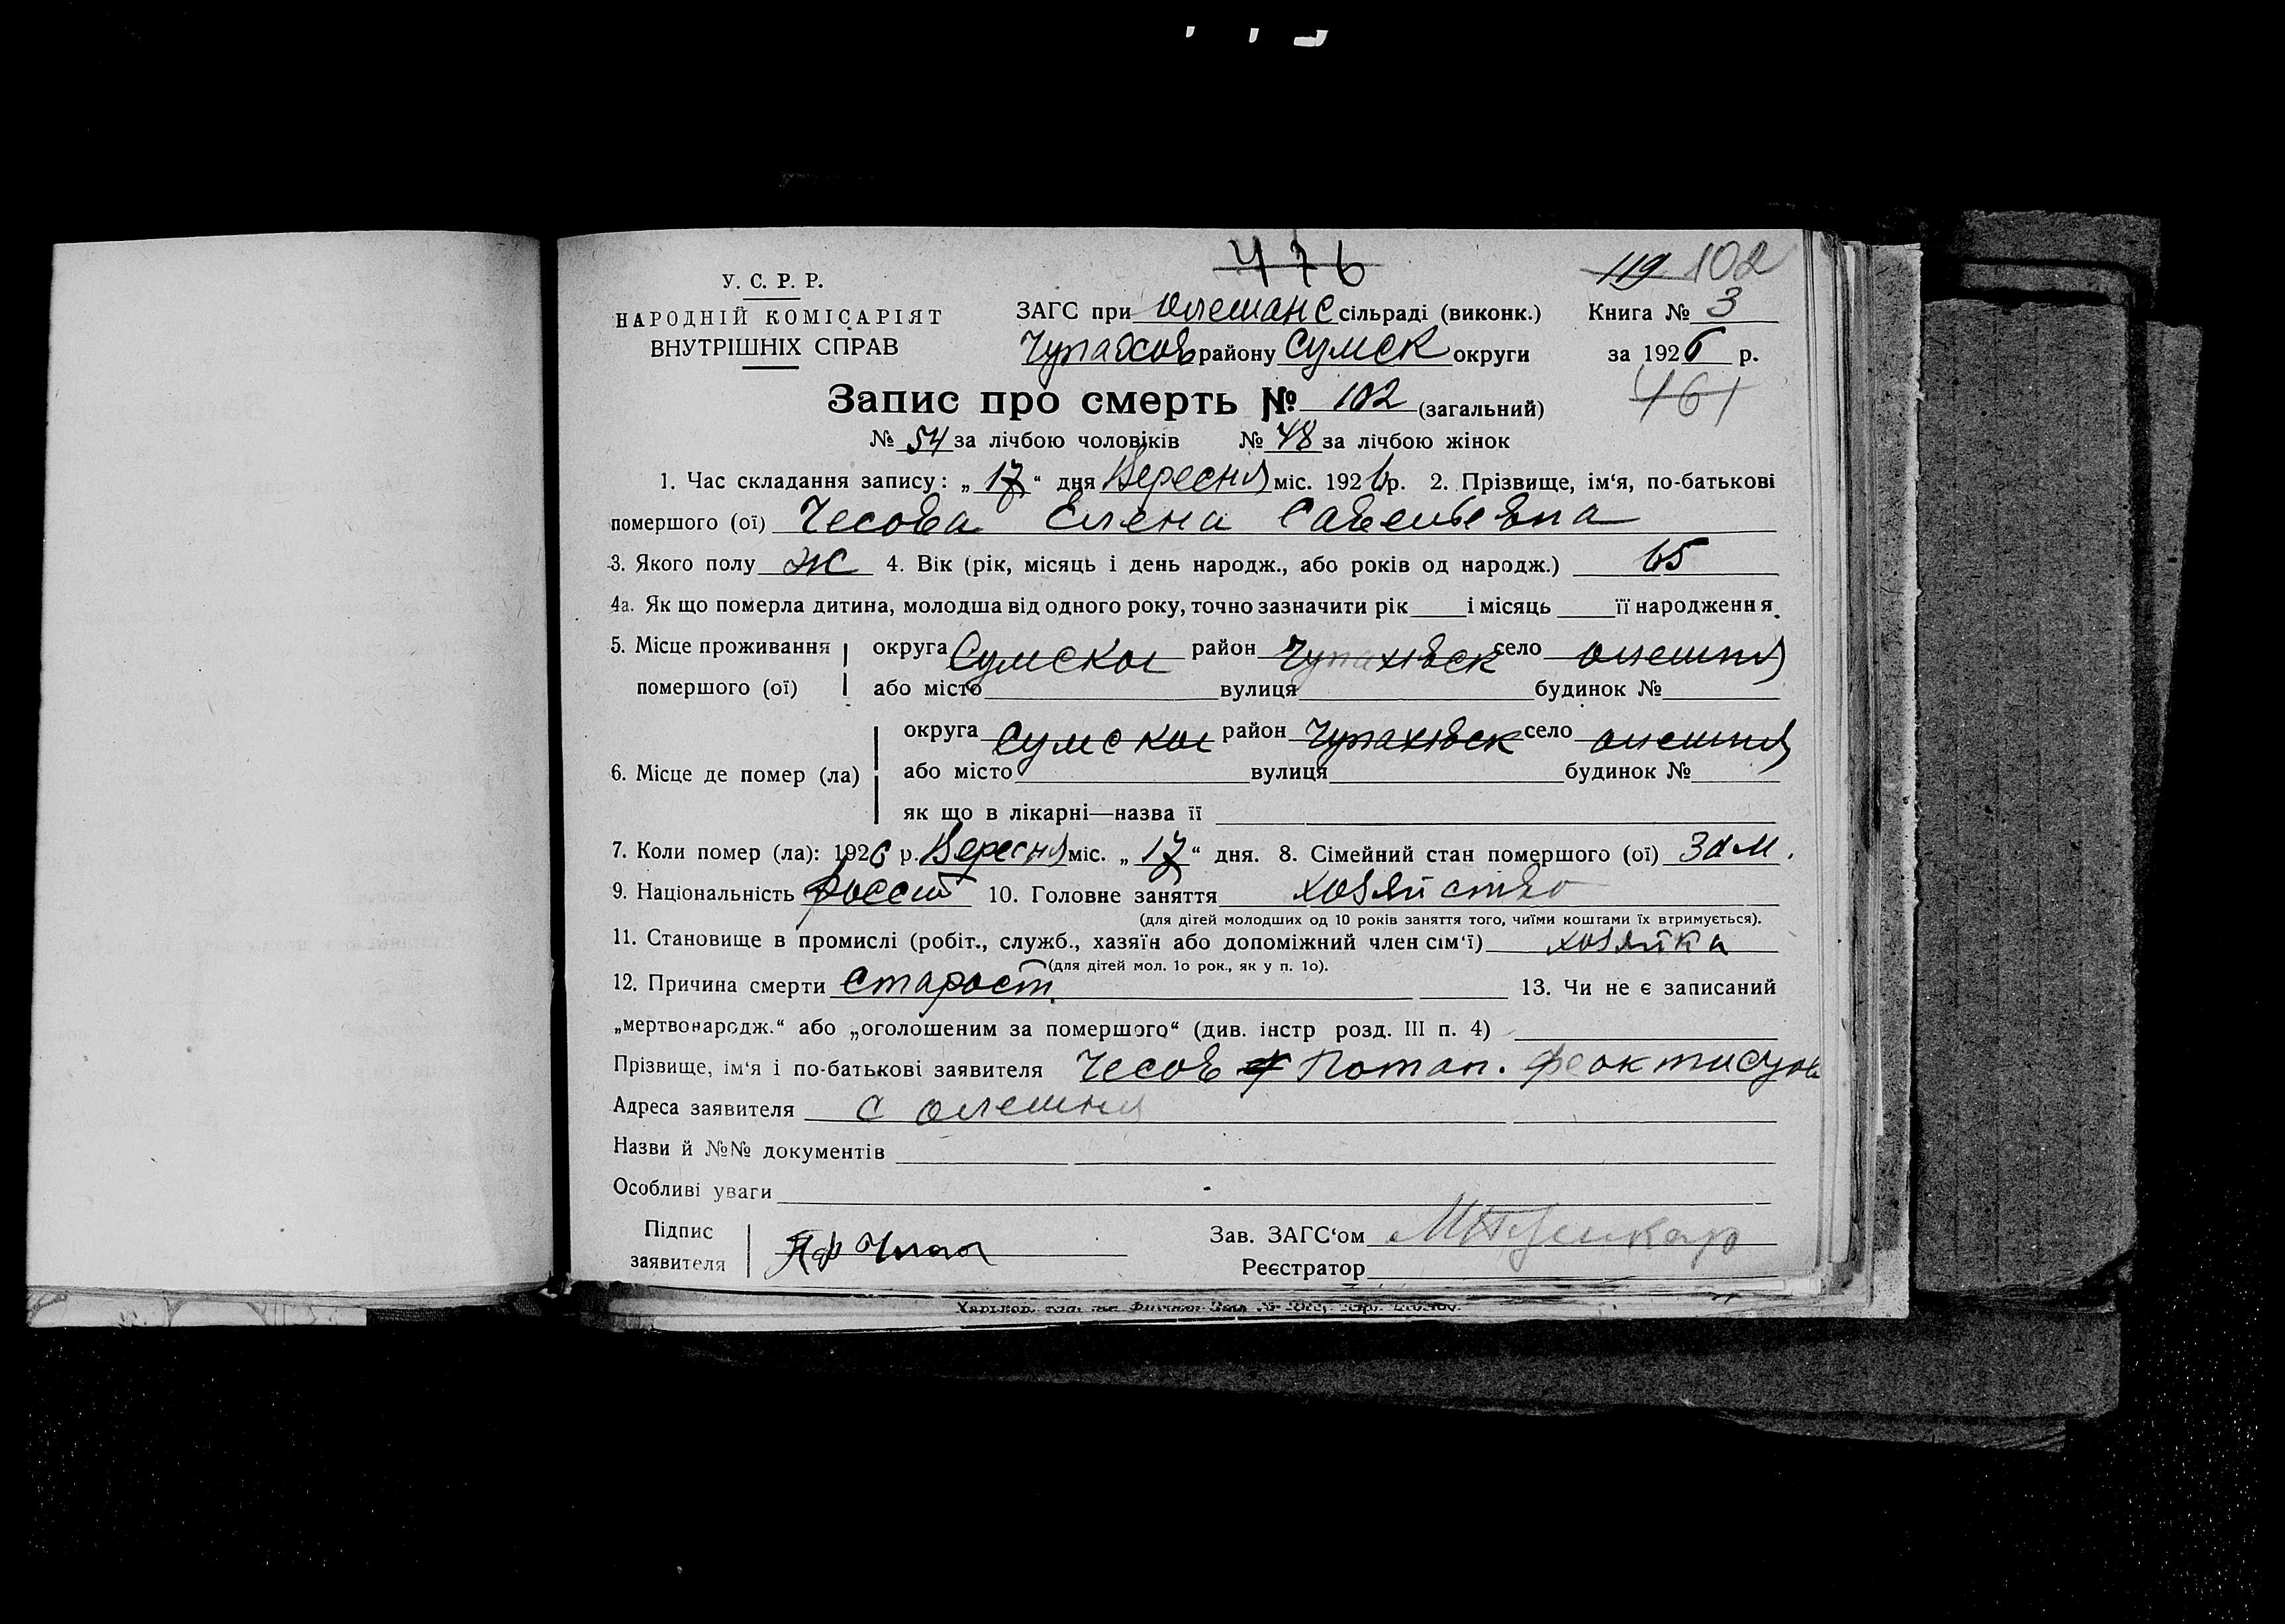 476
119 102
У. С. Р. Р.
НАРОДНІЙ КОМІСАРІЯТ
ВНУТРІШНІХ СПРАВ
ЗАГС при Олешанс сільраді (виконк.)
Чупахов району Сумск округи
Книга № 3
за 1926 р.
461
Запис про смерть № 102 (загальний)
№ 54 за лічбою чоловіків № 48 за лічбою жінок
1. Час складання запису: „17“ дня Вересня міс. 1926 р. 2. Прізвище, ім‘я, по-батькові
помершого (ої) Чесова Елена Савельевна
3. Якого полу ж 4. Вік (рік, місяць і день народж., або років од народж.) 65
4а. Як що померла дитина, молодша від одного року, точно зазначити рік і місяць її народження.
5. Місце проживання помершого (ої)
округа Сумског район Чупахівск село олешня
або місто вулиця будинок №
6. Місце де помер (ла)
округа Сумског район Чупахівск село олешня
або місто вулиця будинок №
як що в лікарні—назва її
7. Коли помер (ла): 1926 р. Вересня міс. „17“ дня. 8. Сімейний стан помершого (ої) Зам.
9. Національність россій 10. Головне заняття хозяйство
(для дітей молодших од 10 років заняття того, чиїми коштами їх втримується).
11. Становище в промислі (робіт., служб., хазяїн або допоміжний член сім‘ї) хозяйка
(для дітей мол. 1о рок., як у п. 1о).
12. Причина смерти Старост 13. Чи не є записаний
„мертвонародж.“ або „оголошеним за помершого“ (див. інстр розд. III п. 4)
Прізвище, ім‘я і по-батькові заявителя Чесов Потап. Феоктисов
Адреса заявителя с олешня
Назви й №№ документів
Особливі уваги
Підпис
заявителя
Зав. ЗАГС‘ом
Реєстратор